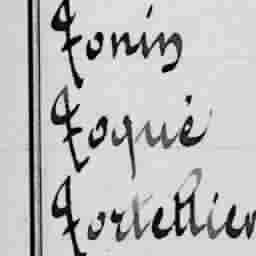 Tonin
Toqué
Tortellier